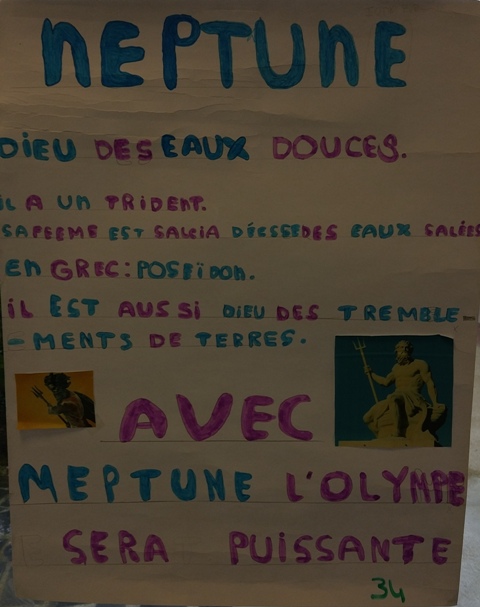 NEPTUNE
DIEU DES EAUX DOUCES.
IL A UN TRIDENT.
SA FEEME EST SALCIA DÉESSE DES EAUX SALÉES
EN GREC : POSEÏDON.
IL EST AUSSI DIEU DES TREMBLE-
-MENTS DE TERRES.
AVEC
NEPTUNE L'OLYMPE
SERA PUISSANTE
34